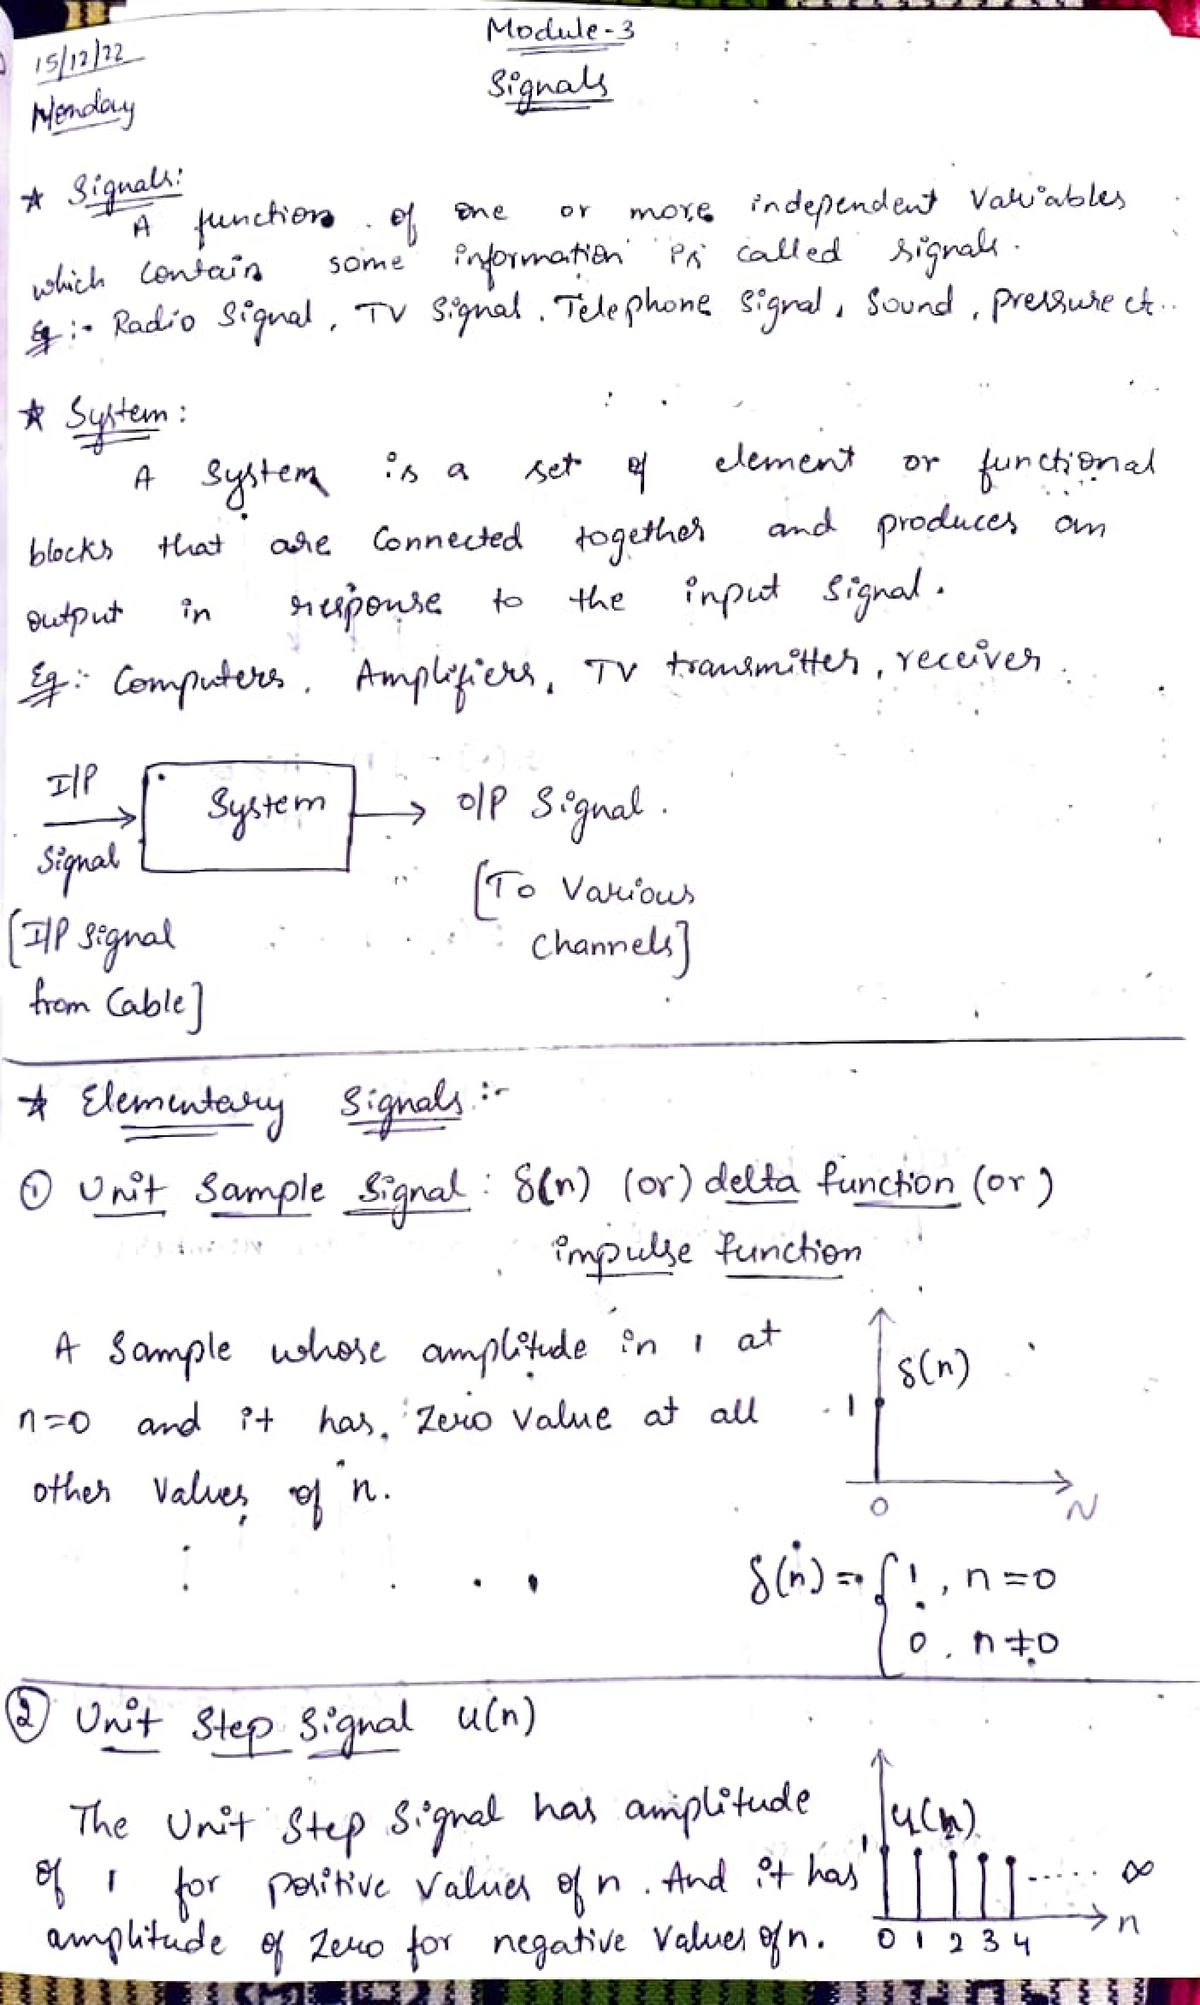 Module-3
15/12/22
Signals
Monday
* Signals:
A function of one or more independent Variables
which contain some information is called signals.
Eg:- Radio Signal, TV Signal, Telephone Signal, Sound, pressure et..
* System:
A System is a set of element or functional
blocks that are Connected together and produces an
output in response to the input signal.
Eg:- Computers, Amplifiers, TV transmitter, receiver.
I/P
Signal
System
O/P Signal.
[To Various
Channels]
[I/P Signal
from Cable]
* Elementary Signals:-
① Unit Sample Signal: δ(n) (or) delta function (or)
impulse function
A Sample whose amplitude in 1 at
n=0 and it has Zero Value at all
other Values of n.
δ(n)
1
0
N
δ(n) = { 1, n=0
0, n≠0
② Unit Step Signal u(n)
The Unit Step Signal has amplitude
of 1 for positive Values of n. And it has
amplitude of Zero for negative Values of n.
u(n)
1
..... ∞
n
0 1 2 3 4